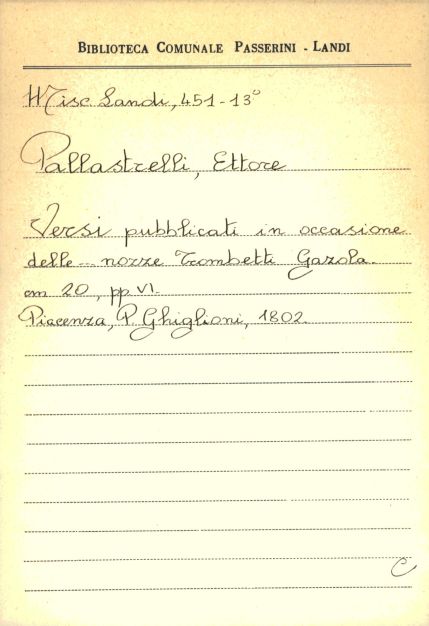 BIBLIOTECA COMUNALE PASSERINI - LANDI
Misc Landi, 451-13°
Pallastrelli, Ettore
Versi pubblicati in occasione
delle... nozze Trombetti Gazola.
cm 20, pp VI.
Piacenza, P. Ghiglioni, 1802.
C